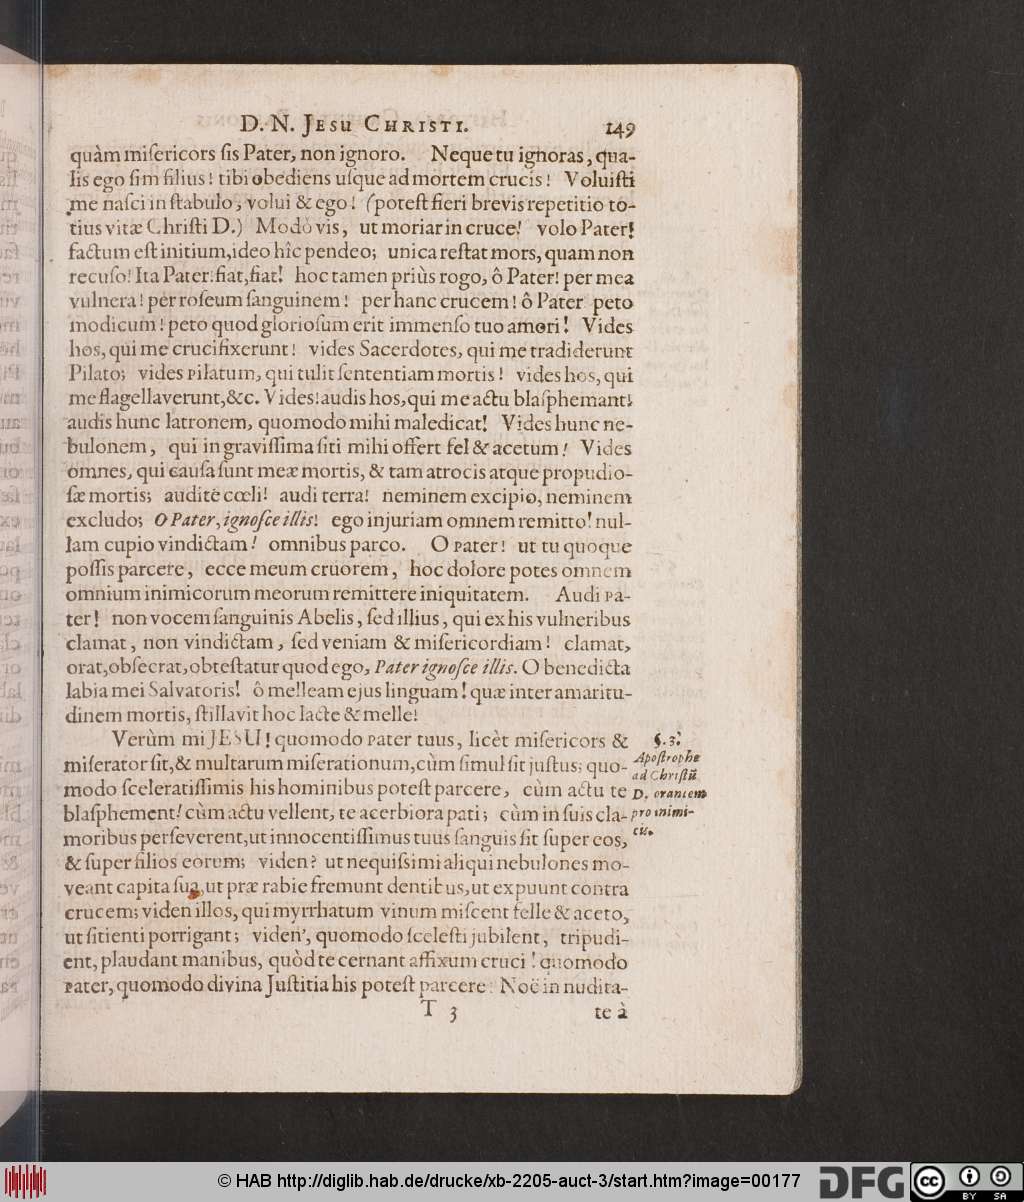 D. N. JESU CHRISTI. 149
quàm miſericors ſis Pater, non ignoro. Neque tu ignoras, qua-
lis ego ſim filius! tibi obediens uſque ad mortem crucis! Voluiſti
me naſci in ſtabulo, volui & ego! (poteſt fieri brevis repetitio to-
tius vitæ Chriſti D.) Modò vis, ut moriar in cruce! volo Pater!
factum eſt initium, ideo hîc pendeo; unica reſtat mors, quam non
recuſo! Ita Pater: fiat, fiat! hoc tamen priùs rogo, ô Pater! per mea
vulnera! per roſeum ſanguinem! per hanc crucem! ô Pater peto
modicum! peto quod glorioſum erit immenſo tuo amori! Vides
hos, qui me crucifixerunt! vides Sacerdotes, qui me tradiderunt
Pilato; vides Pilatum, qui tulit ſententiam mortis! vides hos, qui
me flagellaverunt, &c. Vides! audis hos, qui me actu blaſphemant!
audis hunc latronem, quomodo mihi maledicat! Vides hunc ne-
bulonem, qui in graviſſima ſiti mihi offert fel & acetum! Vides
omnes, qui cauſa ſunt meæ mortis, & tam atrocis atque propudio-
ſæ mortis; audite cœli! audi terra! neminem excipio, neminem
excludo; O Pater, ignoſce illis! ego injuriam omnem remitto! nul-
lam cupio vindictam! omnibus parco. O Pater! ut tu quoque
poſſis parcere, ecce meum cruorem, hoc dolore potes omnem
omnium inimicorum meorum remittere iniquitatem. Audi Pa-
ter! non vocem ſanguinis Abelis, ſed illius, qui ex his vulneribus
clamat, non vindictam, ſed veniam & miſericordiam! clamat,
orat, obſecrat, obteſtatur quod ego, Pater ignoſce illis. O benedicta
labia mei Salvatoris! ô melleam ejus linguam! quæ inter amaritu-
dinem mortis, ſtillavit hoc lacte & melle!
Verùm mi JESU! quomodo Pater tuus, licèt miſericors &
miſerator ſit, & multarum miſerationum, cùm ſimul ſit juſtus; quo-
modo ſceleratiſſimis his hominibus poteſt parcere, cùm actu te
blaſphement! cùm actu vellent, te acerbiora pati; cùm in ſuis cla-
moribus perſeverent, ut innocentiſſimus tuus ſanguis ſit ſuper eos,
& ſuper filios eorum; viden? ut nequiſsimi aliqui nebulones mo-
veant capita ſua, ut præ rabie fremunt dentibus, ut expuunt contra
crucem; viden illos, qui myrrhatum vinum miſcent felle & aceto,
ut ſitienti porrigant; viden', quomodo ſceleſti jubilent, tripudi-
ent, plaudant manibus, quòd te cernant affixum cruci! quomodo
Pater, quomodo divina Juſtitia his poteſt parcere? Noë in nudita-
T 3 te à
§. 3.
Apoſtrophe
ad Chriſtū
D. orantem
pro inimi-
cis.
© HAB http://diglib.hab.de/drucke/xb-2205-auct-3/start.htm?image=00177
DFG
cc
BY SA